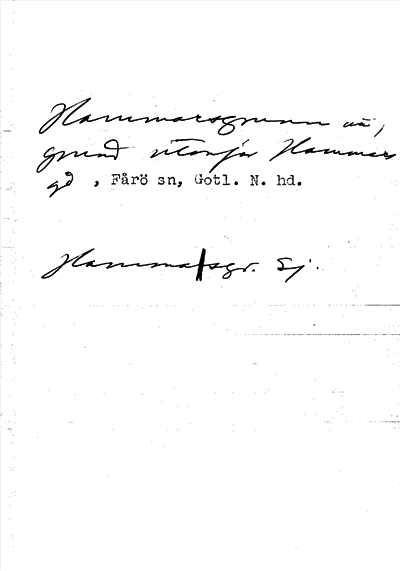 Hammarsgrunn nä,
grund utanför Hammars
gd, Fårö sn, Gotl. N. hd.
Hammarsgr. Sj.